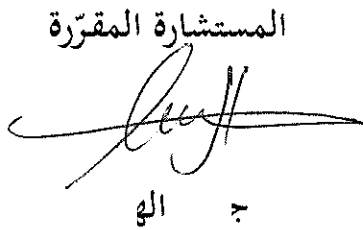 المستشارة المقرّرة
ج الھ